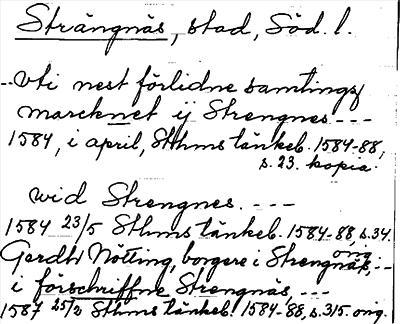 Strängnäs, stad, Söd. l.
--vti nest förlidne samtingz
marcknet ij Strengnes ---
1584, i april, Sthms tänkeb. 1584-88,
s. 23. kopia.
wid Strengnes. ---
1584 23/5 Sthms tänkeb. 1584-88, s. 34.
orig.
Gerdt Nötting, borgere i Strengnäs, --
i förschriffne Strengnäs, ---
1587 25/2 Sthms tänkeb. 1584-88, s. 315. orig.